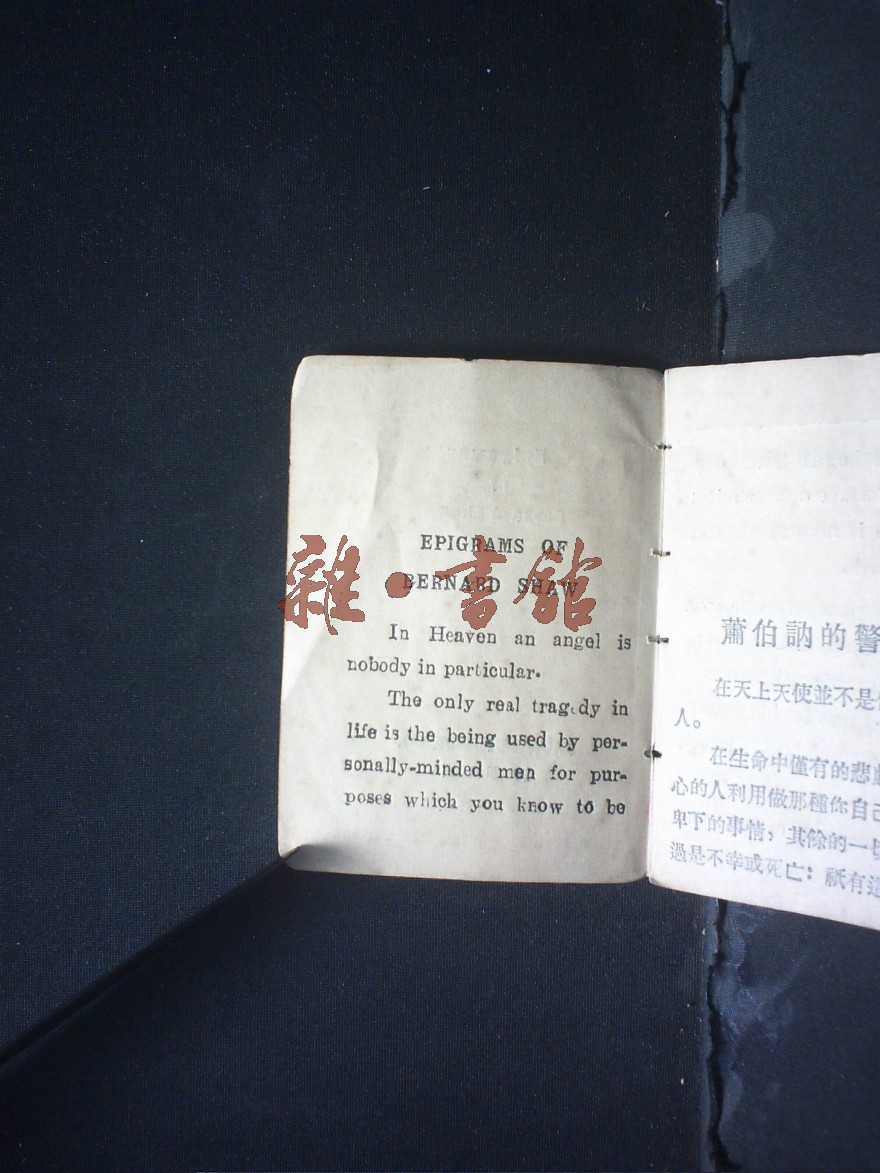 EPIGRAMS OF
BERNARD SHAW
In Heaven an angel is
nobody in particular.
The only real tragedy in
life is the being used by per-
sonally-minded men for pur-
poses which you know to be
雜·書館
蕭伯訥的警
在天上天使並不是
人。
在生命中僅有的悲劇
心的人利用做那種你自己
卑下的事情，其餘的一切
過是不幸或死亡：祇有這